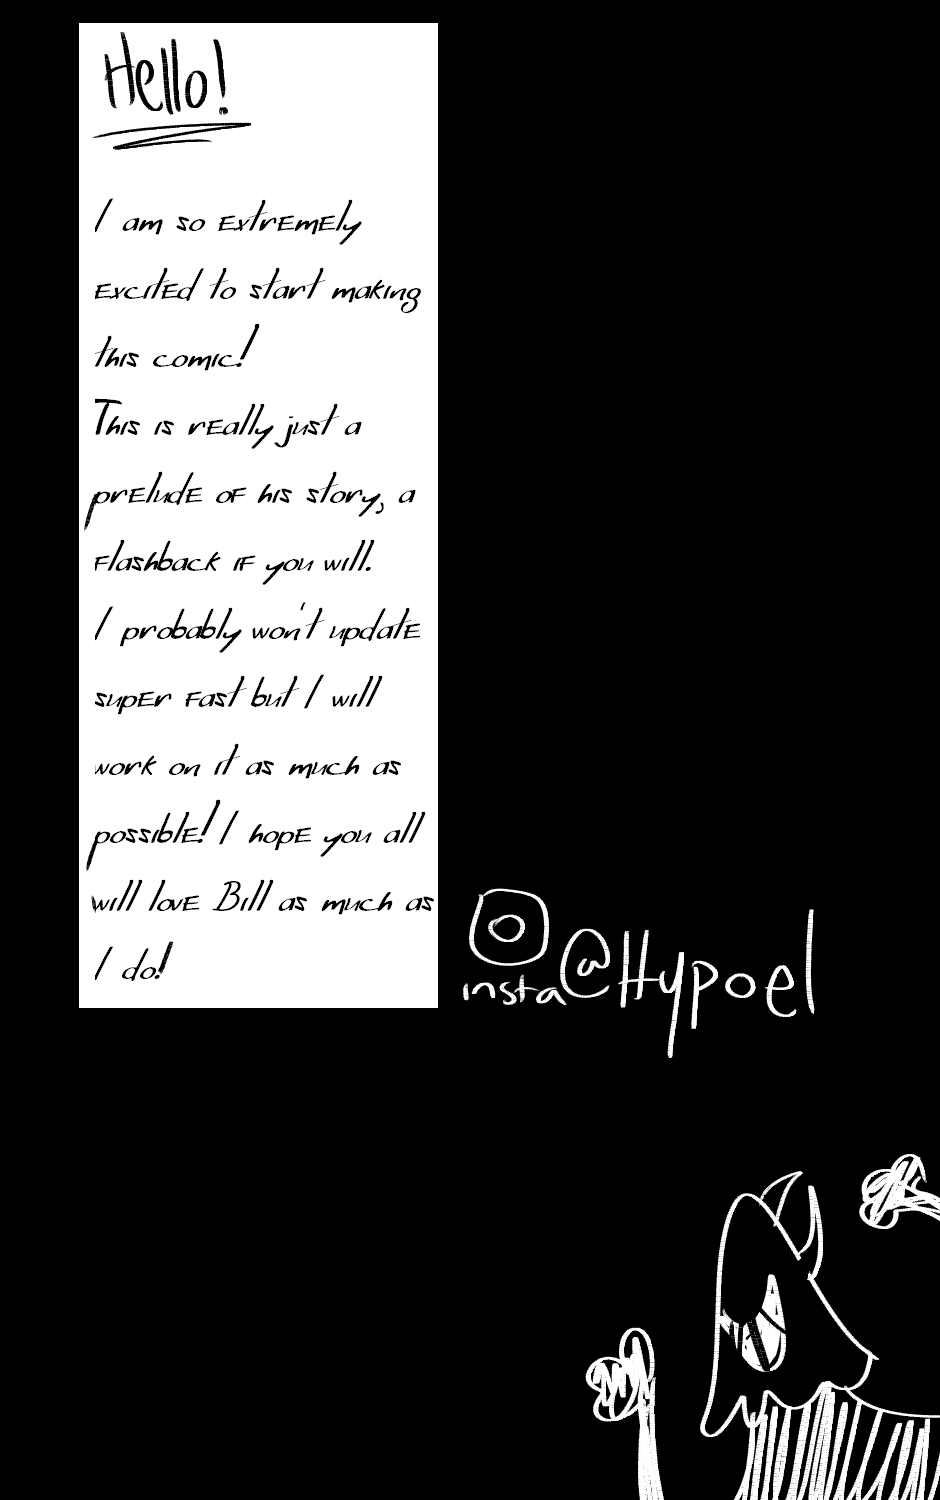 Hello!
I am so extremely
excited to start making
this comic!
This is really just a
prelude of his story, a
flashback if you will.
I probably won't update
super fast but I will
work on it as much as
possible! I hope you all
will love Bill as much as
I do!
insta @Hypoel